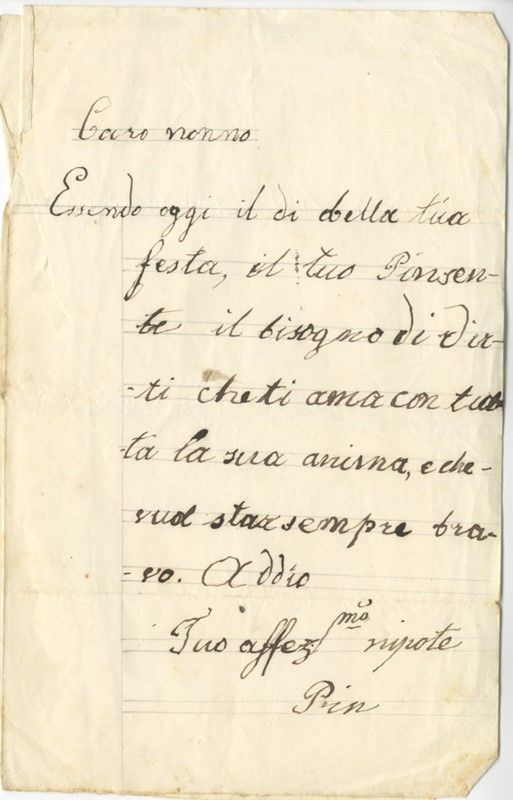 Caro nonno
Essendo oggi il di della tua
festa, il tuo Pin sen-
te il bisogno di dir-
-ti che ti ama con tut-
ta la sua anima, e che-
vuol star sempre bra-
-vo. Addio
Tuo affez mo nipote
Pin